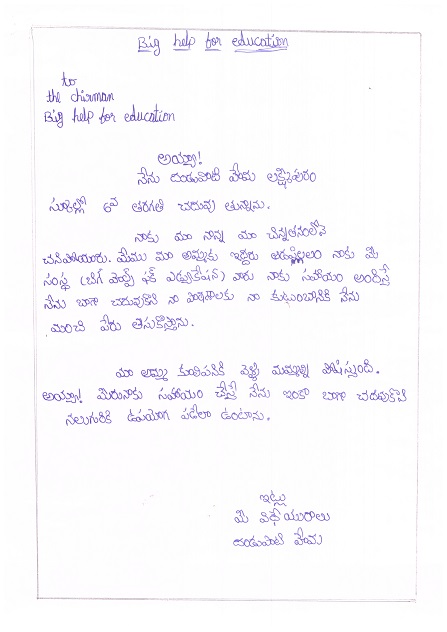 Big help for education
to
the chirman
Big help for education
అయ్యా!
నేను దండుపాటి హేమ లక్ష్మీపురం
స్కూల్లో 6వ తరగతి చదువు తున్నాను.
నాకు మా నాన్న మా చిన్నతనంలోనే
చనిపోయారు. మేము మా అమ్మకు ఇద్దరు ఆడపిల్లలం నాకు మీ
సంస్థ (బిగ్ హెల్ప్ ఫర్ ఎడ్యుకేషన్) వారు నాకు సహాయం అందిస్తే
నేను బాగా చదువుకొని నా పాఠశాలకు నా కుటుంబానికి నేను
మంచి పేరు తీసుకొస్తాను.
మా అమ్మ కూలిపనికి వెళ్ళి మమ్మల్ని పోషిస్తుంది.
అయ్యా! మీరునాకు సహాయం చేస్తే నేను ఇంకా బాగా చదువుకొని
నలుగురికి ఉపయోగ పడేలా ఉంటాను.
ఇట్లు
మీ విధేయురాలు
దండుపాటి హేమ